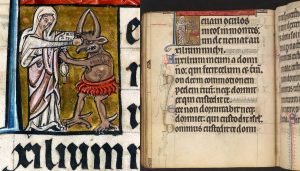 xilium m
euaui oculos
meos in montes:
unde ueniet au
xilium michi.
Auxilium meum a domi
no: qui fecit celum et
commotionem
pedem tuum: neque dormi
et qui custodit te.
Ecce non dormitabit neque
dormiet: qui custodit
Dominus custodit te domi